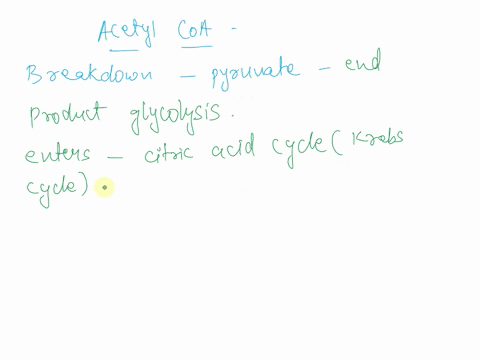 Acetyl CoA -
Breakdown - pyruvate - end
Product glycolysis.
enters - citric acid cycle (Krebs
cycle)